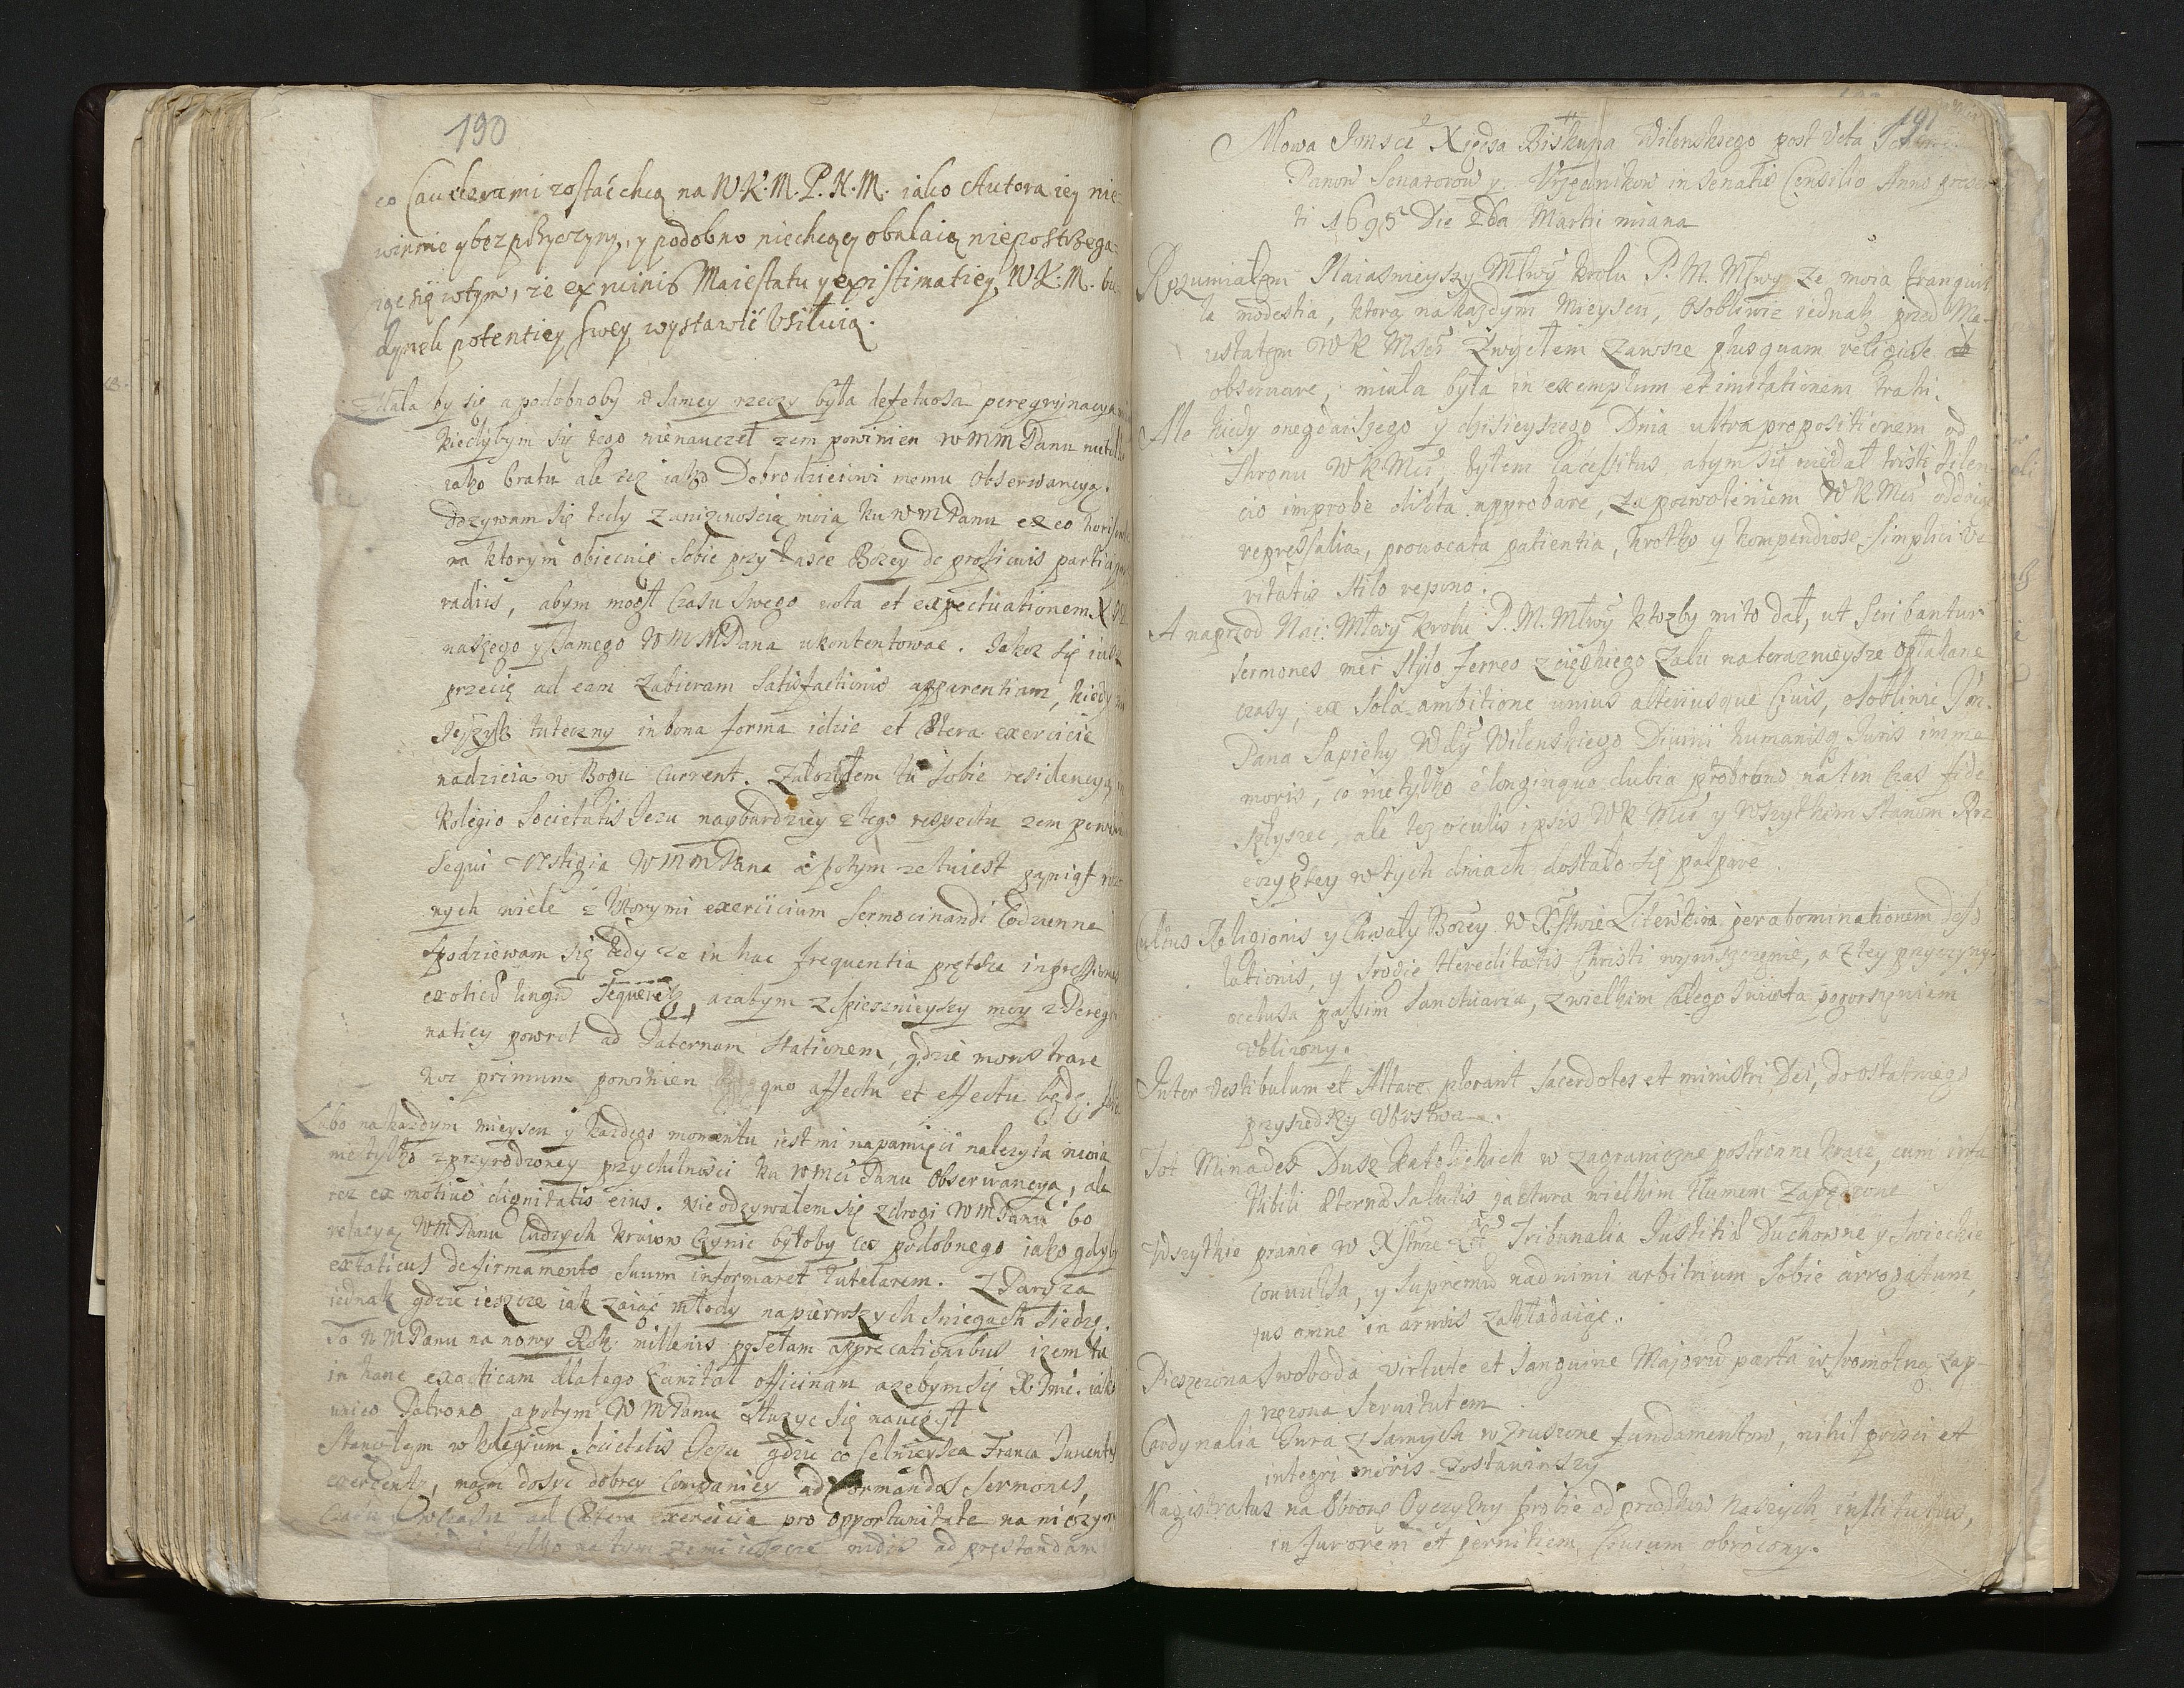 190
co Causerami zostać chcą na W.K.M. P.N.M. iako Autora iey nie-
winnie y bez przyczyny, y podobno niechcący obalaią niepostrzega-
iąc się w tym, że ex ruinis Maiestatu y existimatiey W.K.M. bu-
dynek potentiey swey wystawić usiłuią.
Stała by się a podobnoby w samey rzeczy była defetuosa peregrynacya
kiedybym się tego nienauczył żem powinien W M M Panu nietylko
iako bratu ale też iako Dobrodzieiowi memu obserwancyą.
Ozywam się tedy z uniznością moią ku W M Panu ex eo
na ktorym obiecuię sobie przy łasce Bozey de proficuis
radiis, abym mogł czasu swego vota et expectationem X
naszego y samego W M M Pana ukontentować. Jakoz się iusz
przecię ad eam zabieram satisfactionis apparentiam, kiedy
Język tuteczny in bona forma idzie et cætera exercitia
nadzieia w Bogu current. Załozyłem tu sobie residencyą
Kolegio Societatis Jesu naybardziey z tego respectu zem
sequi vestigia W M M Pana a potym ze tu iest paniąt
nych wiele z ktorymi exercicium sermocinandi codzienne
spodziewam się tedy ze in hac frequentia prętsza inpressio
exoticæ linguæ sequetur, a zatym zspieszniejszy moy z Peregry
natiey powrot ad Paternam stationem, gdzie monstrare
hoc primum powinien quo affectu et effectu będę.
Lubo na kazdym mieyscu y kazdego momentu iest mi na pamięci nalezyta moia
nie tylko z przyrodzoney przychilności ku W Mci Panu obserwancya, ale
tez ex motivo dignitatis eius. Nie odzywałem się z drogi W M Panu bo
relacyą W M Panu cudzych kraiow czynić byłoby coś podobnego iako gdyby
extaticus de firmamento suum informaret tutelarem. Z Paryza
iednak gdzie ieszcze iak zaiąc młody na pierwszych śniegach siedzę.
To W M Panu na nowy Rok millenis posełam apprecationibus izem tu
in hanc exoticam dlatego zawitał officinam azebym się
unico Patrono a potym W M Panu słuzyć się nauczył
Stanołem w kolegium Societatis Jesu gdzie co celnieysza Franca Juventus
exercentur, mam dosyc dobrey Companiey ad formandos sermones,
ad cætera exercitia pro opportunitate na niczym
tylko na tym zemi ieszcze ad præstandam
191
Mowa Jmści Xiędza Biskupa Wilenskiego post vota
Panow Senatorow y Urzędnikow in Senatus Consilio Anno præsen
ti 1695 Die 2da Martii miana
Rozumiałem Naiaśnieyszy Młwy Krolu P. M. Młwy ze moia tranquil
la modestia, ktorą na kazdym mieyscu, osobliwie iednak przed Ma-
iestatem W K Mści zwykłem zawsze plusquam religiose
observare, miała bydz in exemplum et imitationem trahi.
Ale kiedy onegdaiszego y dzisieyszego Dnia ultra propositionem od
Thronu W K Mci, byłem lacessitus, abym się niezdał tristi silen-
cio improbe dicta approbare, za pozwoleniem W K Mci oddaię
repressalia, provocata patientia, krotko y kompendiose simplici ve
ritatis stilo repono.
A naprzod Nai: Młwy Krolu P. M. Młwy ktozby mi to dał, ut scribantur
sermones mei stylo ferreo z cięzkiego zalu na teraznieysze opłakane
czasy, ex sola ambitione unius alteriusque Civis, osobliwie Jm.
Pana Sapiehy Wdy Wilenskiego Divini humanisq Juris imme
moris, co nie tylko e longinquo dubia podobno na ten czas fide
słyszeć, ale tez oculis ipsis W K Mci y Wszytkiem Stanom Rze
czyptey w tych dniach dostało się palpare.
Cultus Religionis y Chwały Bozey w Xstwie Litewskim per abominationem deso
lationis, y srogie Hereditatis Christi wyniszczenie, a z tey przyczyny
occlusa passim sanctuaria, z wielkim całego świata pogorszeniem
ublizony.
Inter vestibulum et Altare plorant Sacerdotes et ministri Dei, do ostatniego
przyszedszy ubostwa.
Tot Miriades Dusz katolickich w zagraniczne postronne kraie, cum irre
tibili æternæ salutis jactura wielkim tłumem zapędzone
Wszytkie prawie w Xstwie Lit Tribunalia Justitiæ Duchowne y Swieckie
convulsa, y supremum nad nimi arbitrium sobie arrogatum,
jus omne in armis zakładaiąc.
Pieszczona swoboda virtute et sanguine Majorum parta w sromotną zap-
rzęzona servitutem
Cardynalia Jura z samych wzruszone fundamentow, nihil prisci et
integri moris zostawiwszy
Magistratus na obronę Oyczyzny sobie od przodkow naszych institutus,
in furorem et perniciem Civium obrocony.